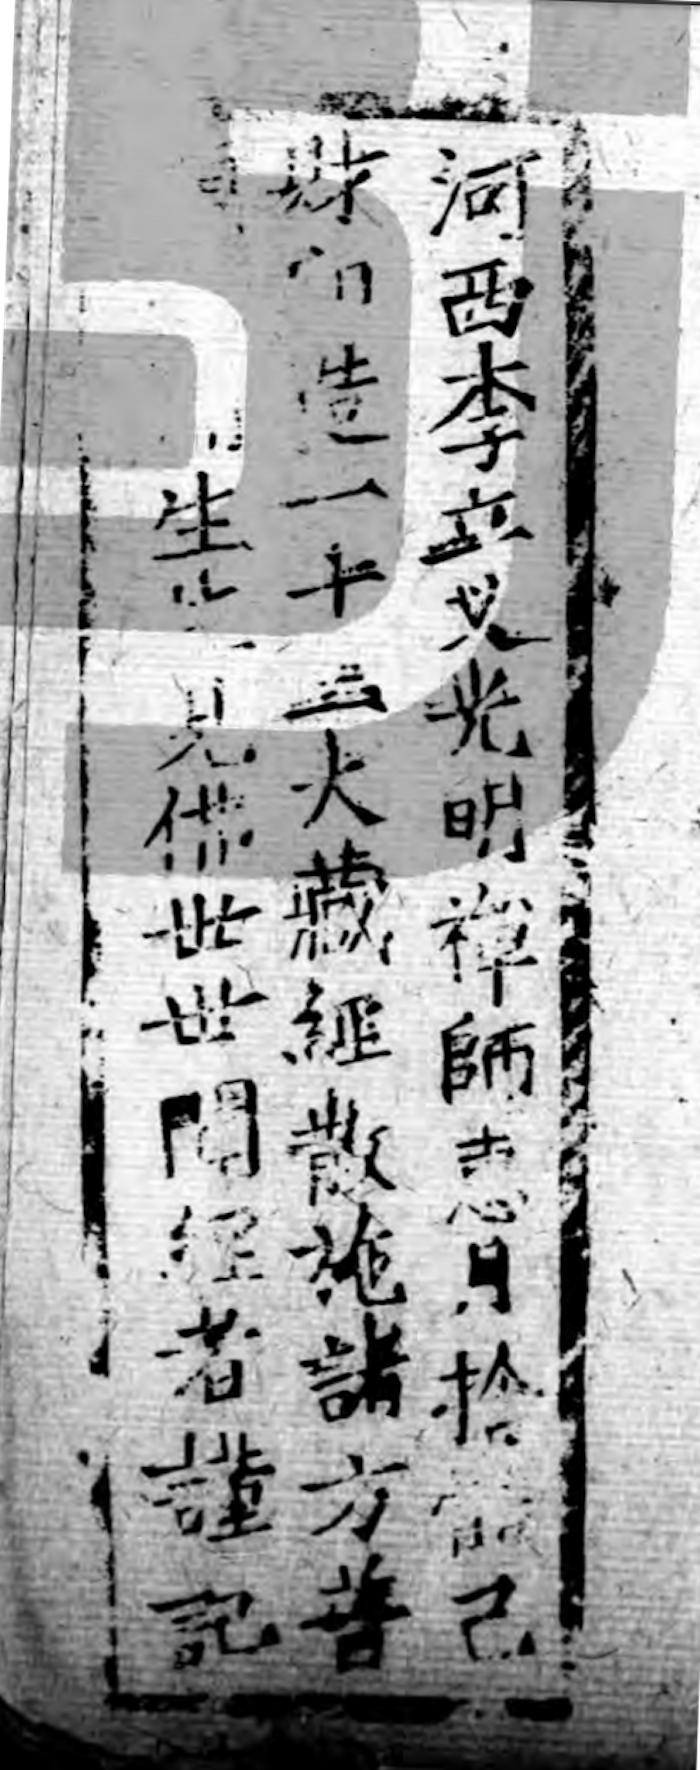 河西李立叉光明禪師惠月捨己
財印造一十三大藏經散施諸方普
生生見佛世世聞經者謹記